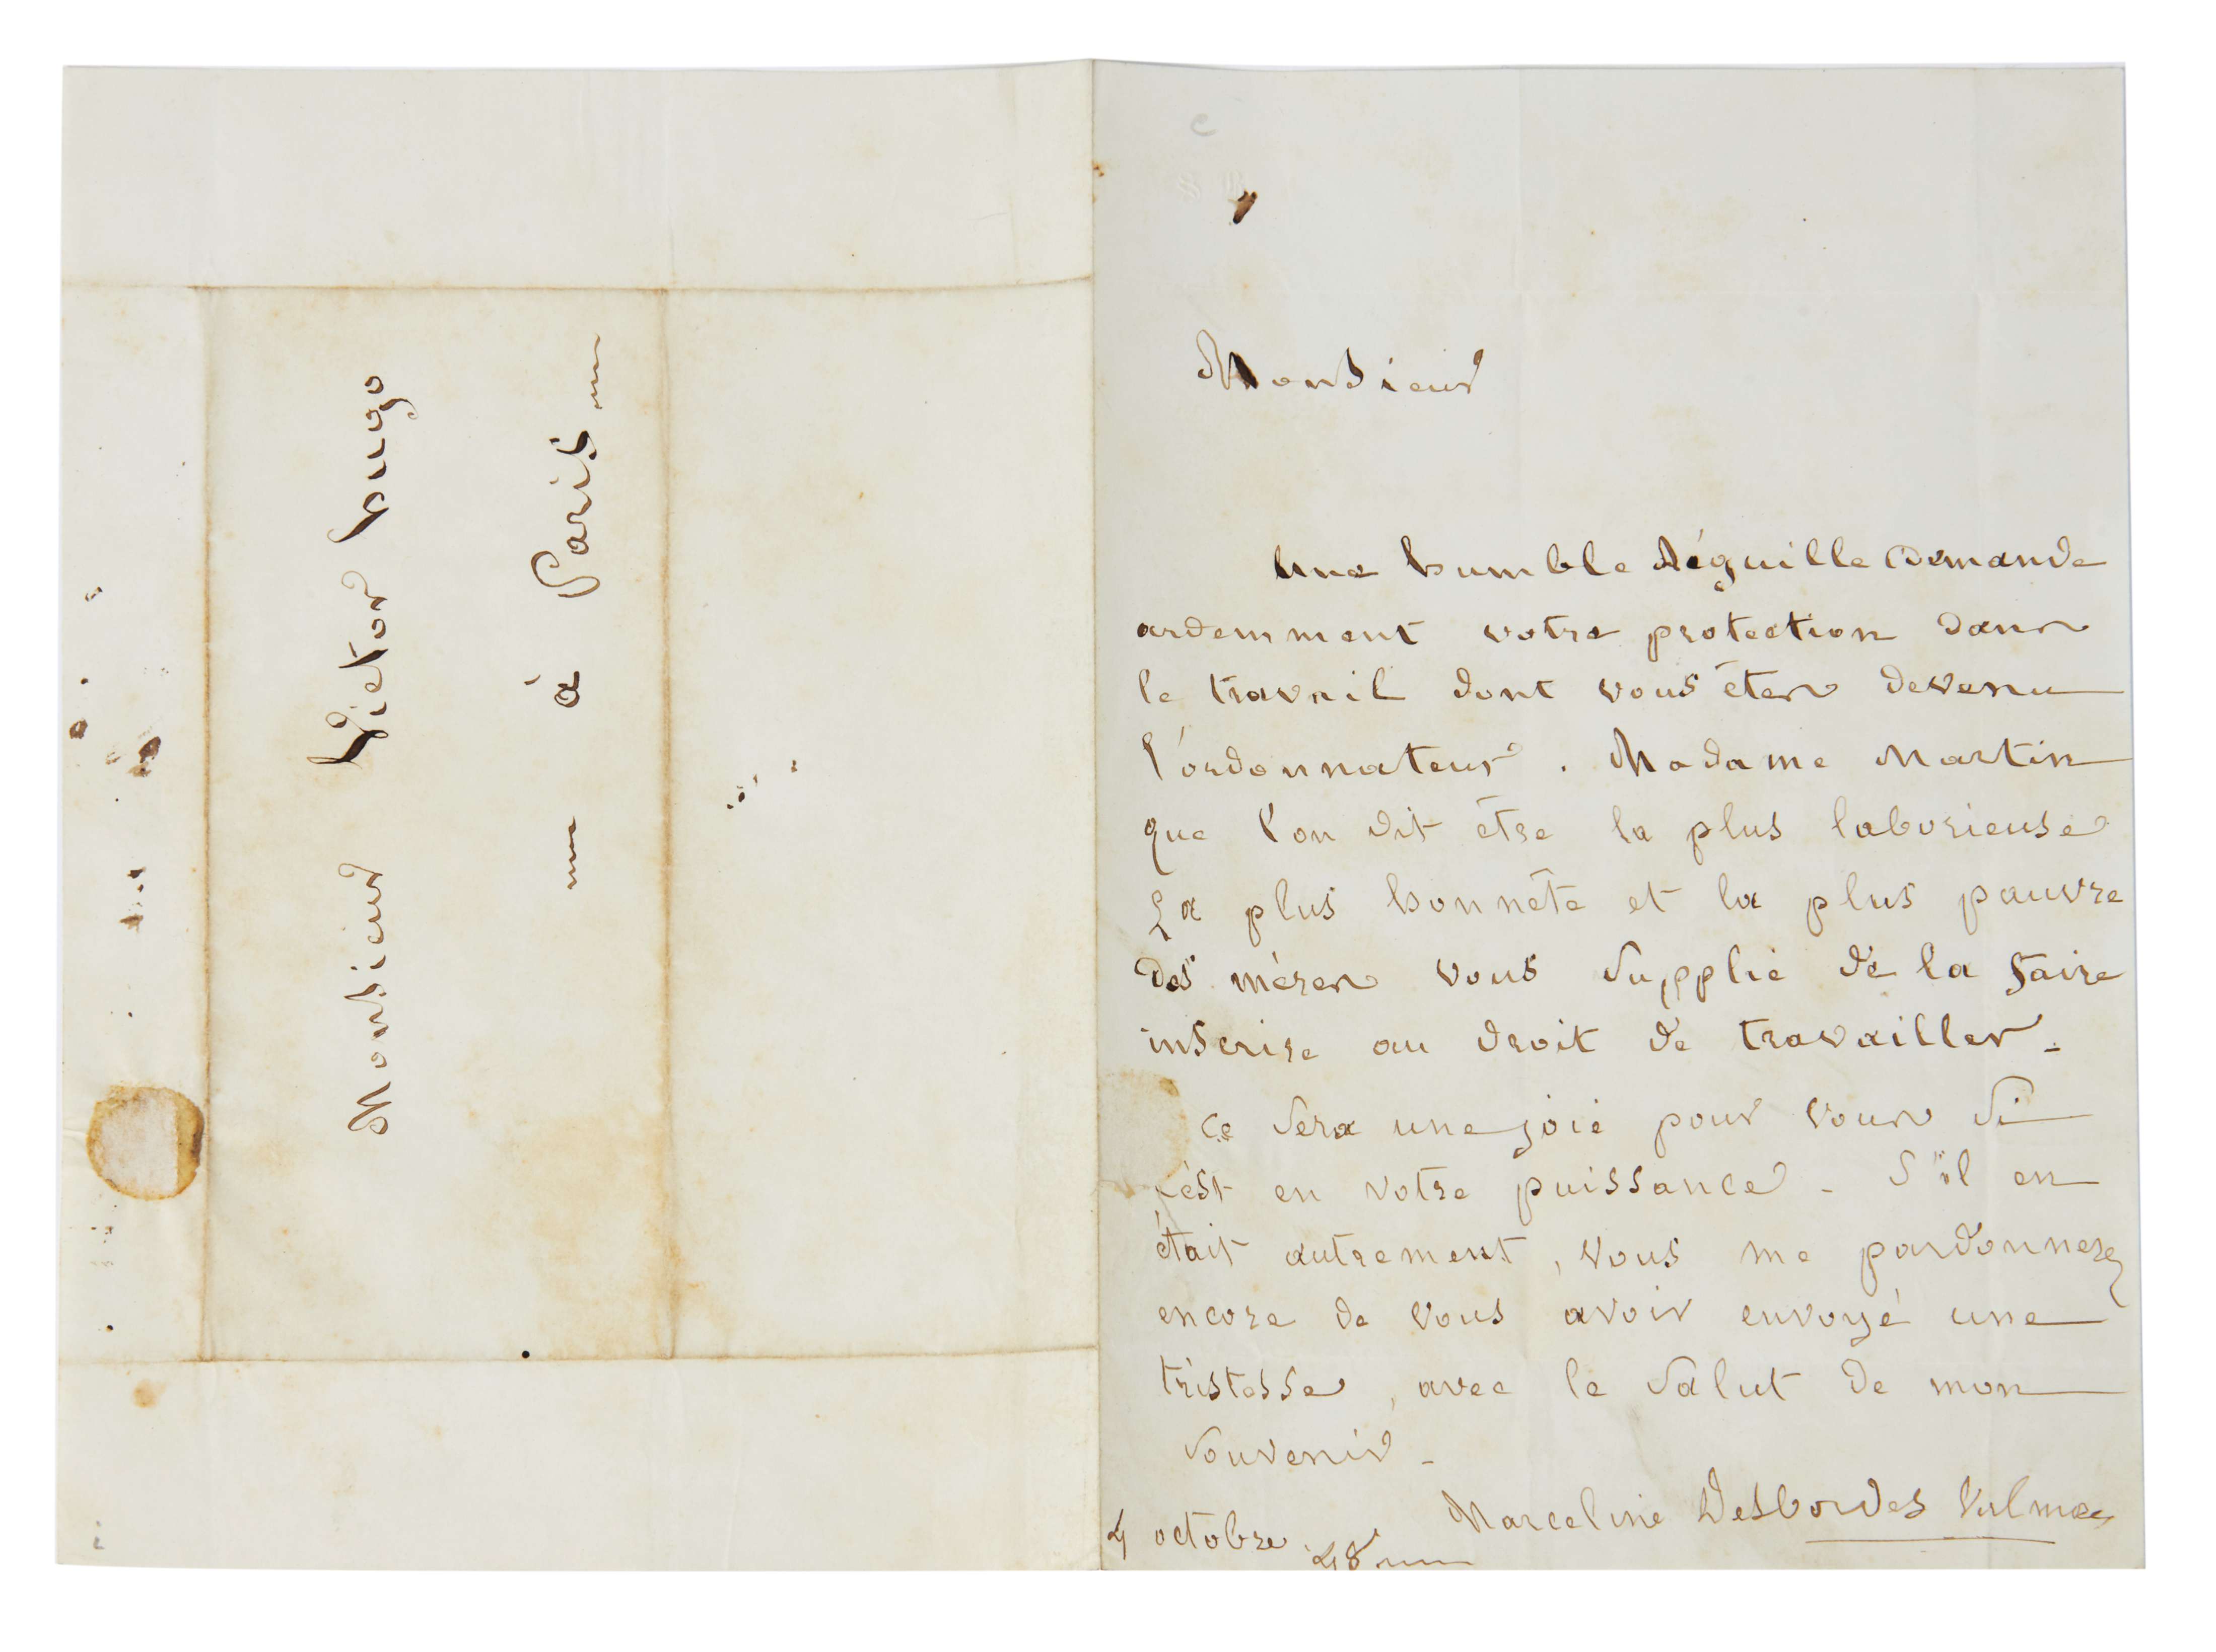 Monsieur Victor hugo
à Paris
Monsieur
Une humble Aéguille demande
ardemment votre protection dans
le travail dont vous êtes devenu
l'ordonnateur. Madame Martin
que l'on dit être la plus laborieuse
La plus honnête et la plus pauvre
des mères vous supplie de la faire
inscrire au droit de travailler -
Ce sera une joie pour vous si
c'est en votre puissance - S'il en
était autrement, vous me pardonnerez
encore de vous avoir envoyé une
tristesse, avec le salut de mon
souvenir -
Marceline Desbordes Valmore
4 octobre 48